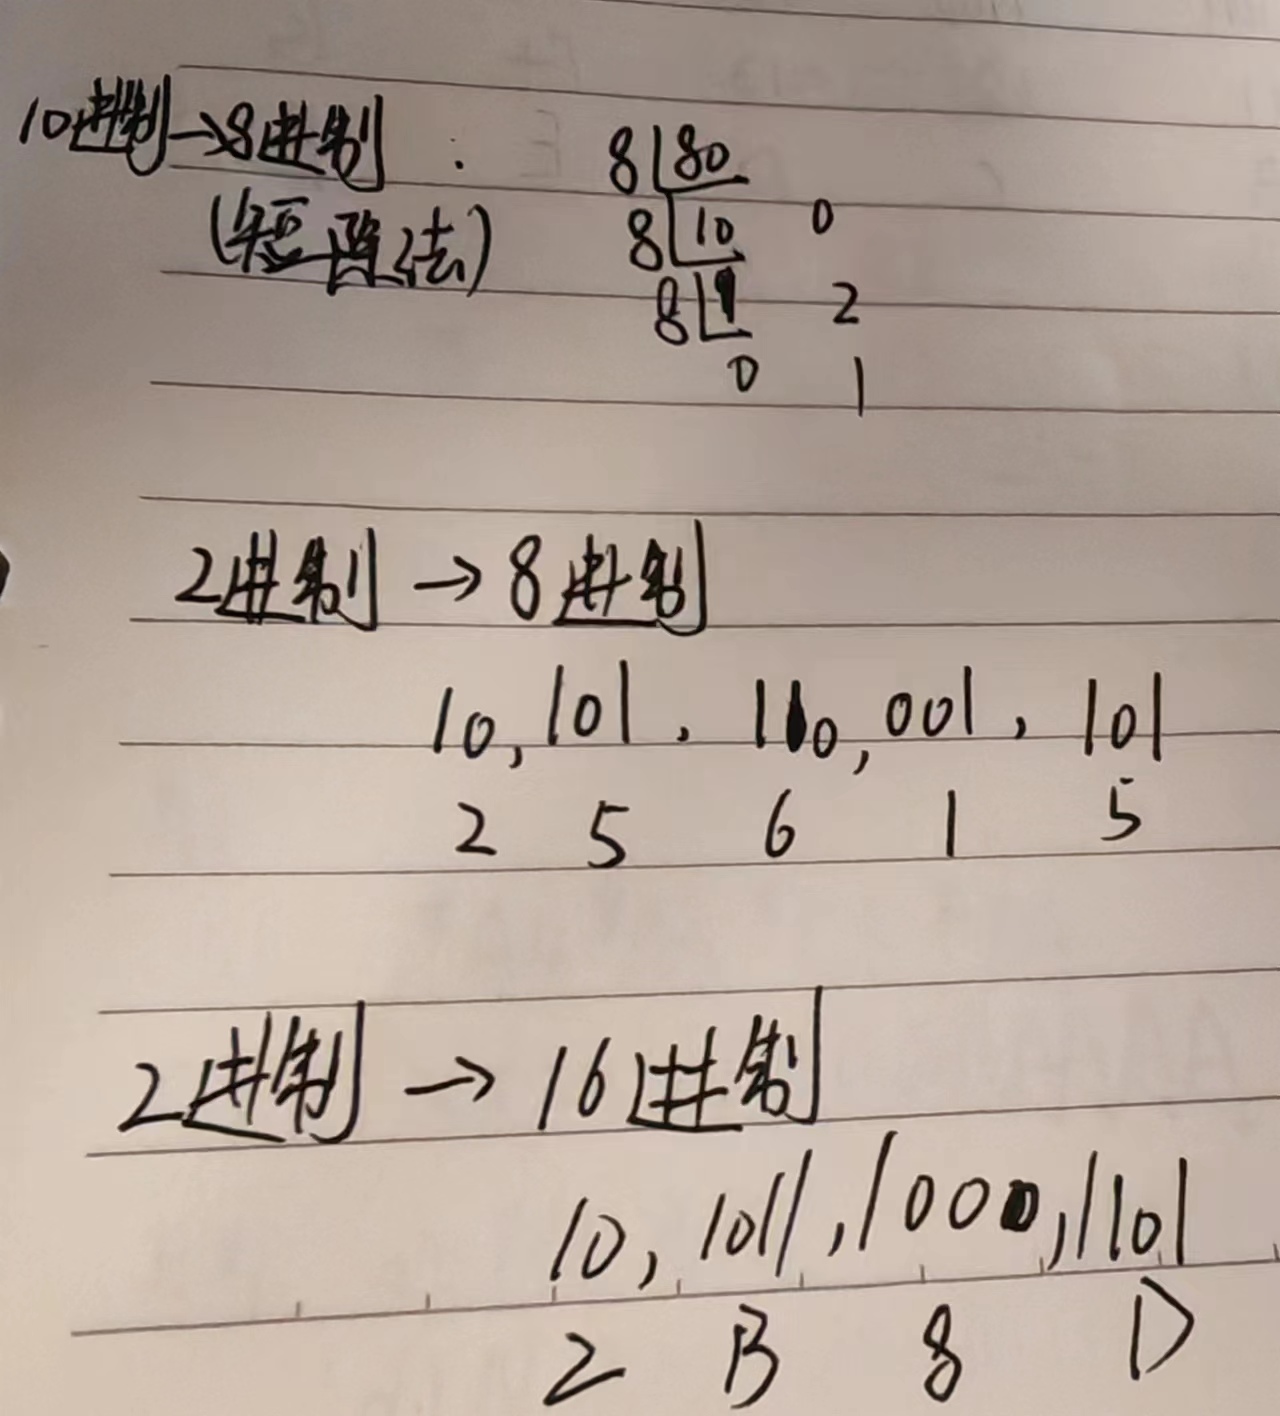 10进制→8进制 : 8 80
(短除法) 8 10 0
8 1 2
0 1
2进制 → 8进制
10, 101, 110, 001, 101
2 5 6 1 5
2进制 → 16进制
10, 1011, 1000, 1101
2 B 8 D